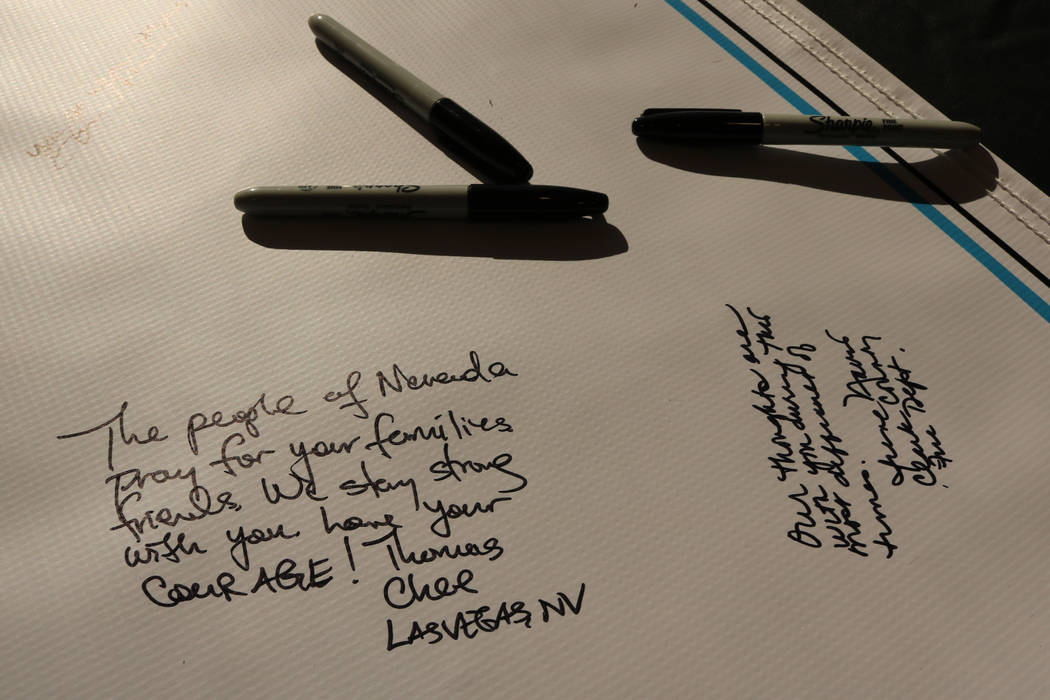 Sharpie
Sharpie
The people of Nevada
pray for your families
friends. We stay strong
with you. have your
COURAGE! Thomas
Chee
LAS VEGAS, NV
Our thoughts are
with you during this
most difficult of
times.
Clark County
Fire Dept.